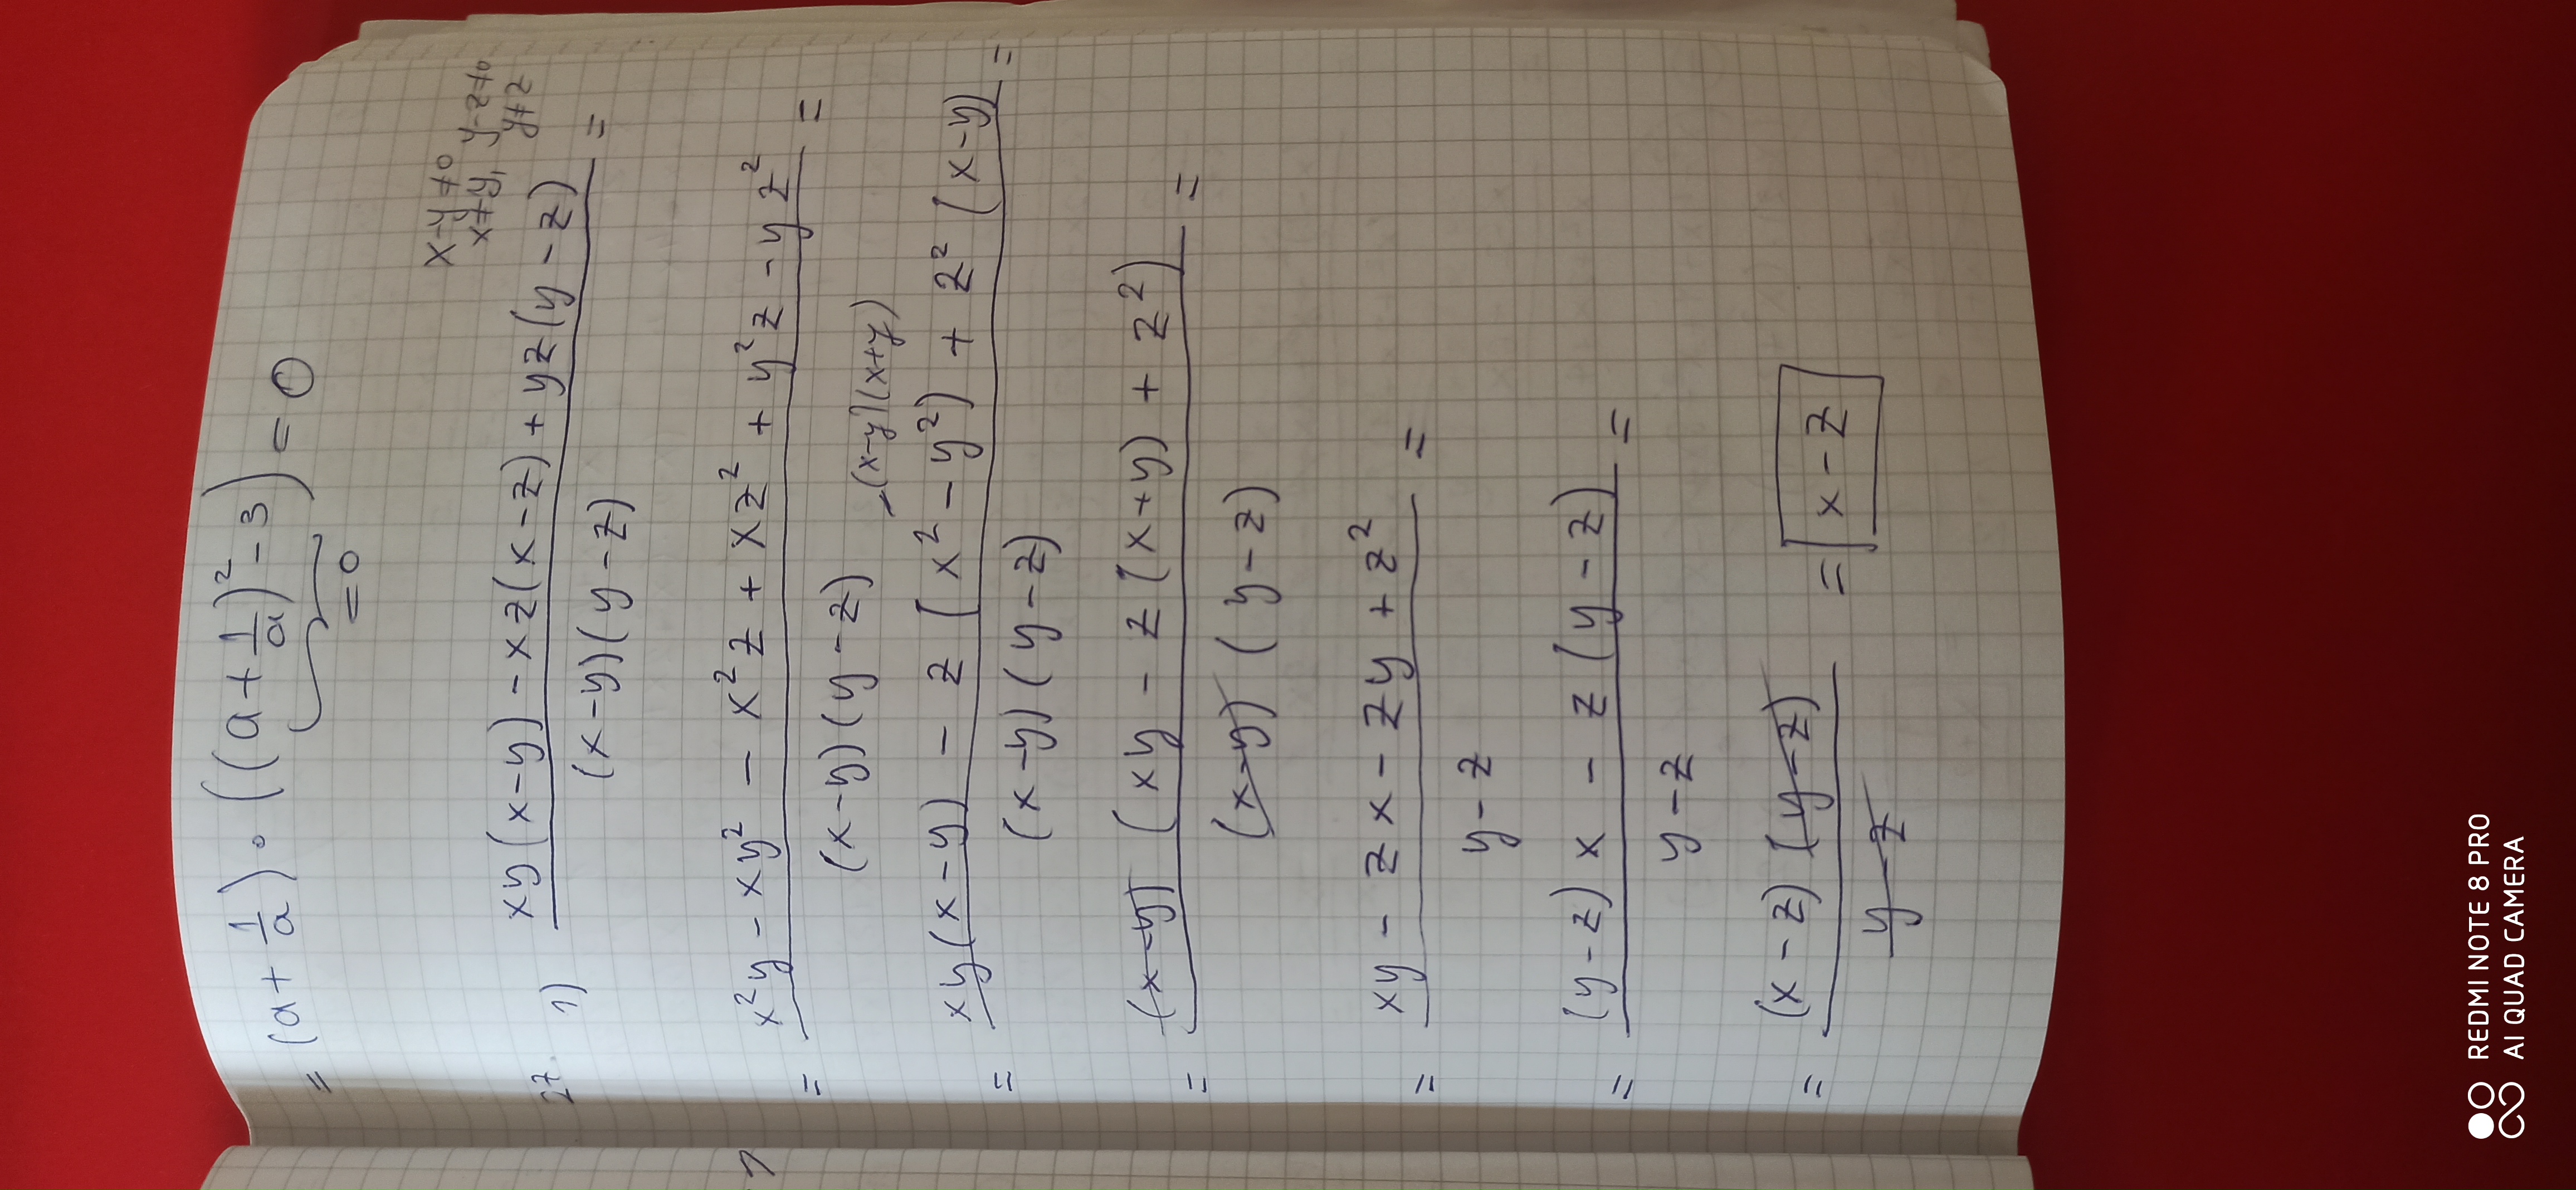 = (a + 1/a) · ((a + 1/a)² - 3) = 0
= 0
x-y ≠ 0 y-z ≠ 0
x ≠ y, y ≠ z
27. 1) xy(x-y) - xz(x-z) + yz(y-z) =
(x-y)(y-z)
= x²y - xy² - x²z + xz² + y²z - yz² =
(x-y)(y-z)
(x-y)(x+y)
= xy(x-y) - z(x² - y²) + z²(x-y) =
(x-y)(y-z)
= (x-y)(xy - z(x+y) + z²) =
(x-y)(y-z)
= xy - zx - zy + z² =
y - z
= (y-z)x - z(y-z) =
y - z
= (x-z)(y-z) = x - z
y - z
REDMI NOTE 8 PRO
AI QUAD CAMERA